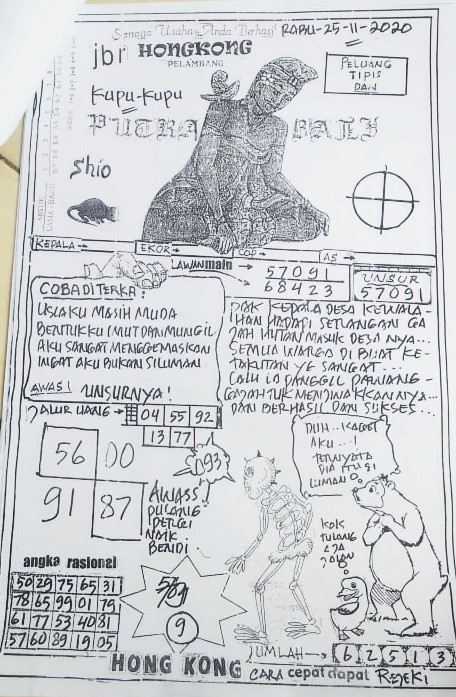 Semoga Usaha Anda Berhasil RABU-25-11-2020
jbr HONGKONG
PELAMBANG
PELUANG
TIPIS
DAN
KUPU-KUPU
PUTRA BALI
Shio
KEPALA EKOR COP AS
LAWAN main 57091
68423
UNSUR
57091
COBA DI TERKA:
USIAKU MASIH MUDA
BENTUKKU IMUT DAN MUNGIL
AKU SANGAT MENGGEMASKAN
INGAT AKU BUKAN SILUMAN
AWAS! UNSURNYA!
PAK KEPALA DESA KEWALA-
HAN HADAPI SERANGAN GA
JAH HUTAN MASUK DESA NYA...
SEMUA WARGA DI BUAT KE-
TAKUTAN YG SANGAT...
LALU IA PANGGIL PAWANG-
GAJAH TUK MENJINAKKANNYA...
DAN BERHASIL DAN SUKSES...
JALUR UANG 04 55 92
13 77
56 00
91 87
093
AWASS!
PULANG
PERGI
NAIK
BENDI
DUH.. KAGET
AKU...!
TERNYATA
DIA ITU SI
LUMAN
KOK
TULANG
ADA
JALAN
angka rasional
50 29 75 65 31
78 65 99 01 79
61 77 53 40 81
57 60 89 19 05
9
JUMLAH 6 2 5 1 3
HONG KONG CARA cepat dapat REJEKI